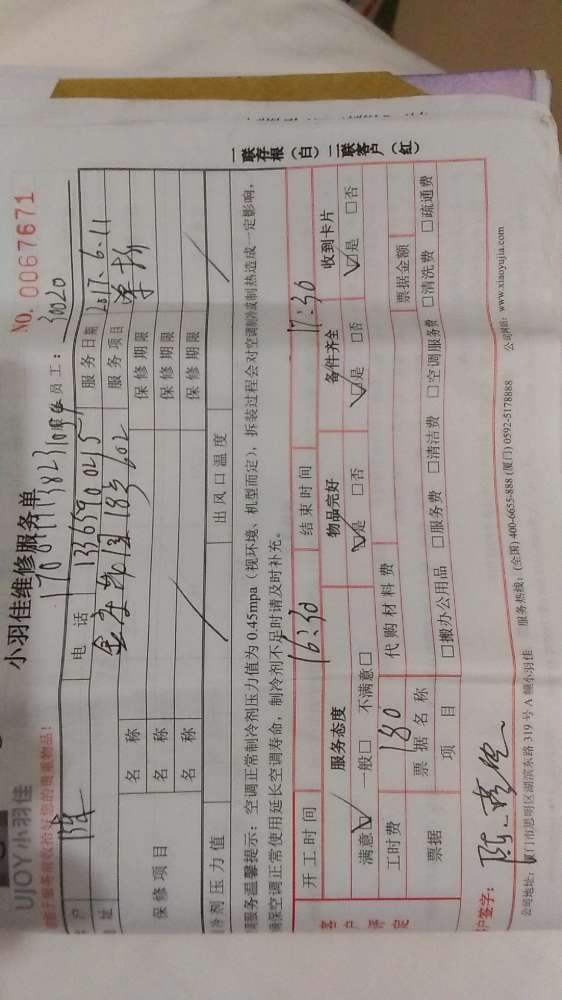 UJOY小羽佳
小羽佳维修服务单
NO. 0067671
收拾好您的贵重物品!
员工: 30020
户 陈 电 话 服务日期 2017.6.11
址 183 602 服务项目
保修项目
名 称 保修期限
名 称 保修期限
名 称 保修期限
冷剂压力值 出风口温度
调服务温馨提示:空调正常制冷剂压力值为 0.45mpa(视环境、机型而定),拆装过程会对空调制冷或制热造成一定影响,
确保空调正常使用延长空调寿命,制冷剂不足时请及时补充。
一联存根(白) 二联客户(红)
客户评定
开工时间 16:30 结束时间 17:30
服务态度 物品完好 备件齐全 收到卡片
满意☑ 一般□ 不满意□ ☑是 □否 ☑是 □否 ☑是 □否
工时费 180 代购材料费
票据 票据名称 票据金额
项 目 □搬办公用品 □服务费 □清洁费 □空调服务费 □清洗费 □疏通费
户签字:
公司地址:厦门市思明区湖滨东路 319 号 A 幢小羽佳 服务热线:(全国) 400-6655-888 (厦门) 0592-5178888 www.xiaoyujia.com